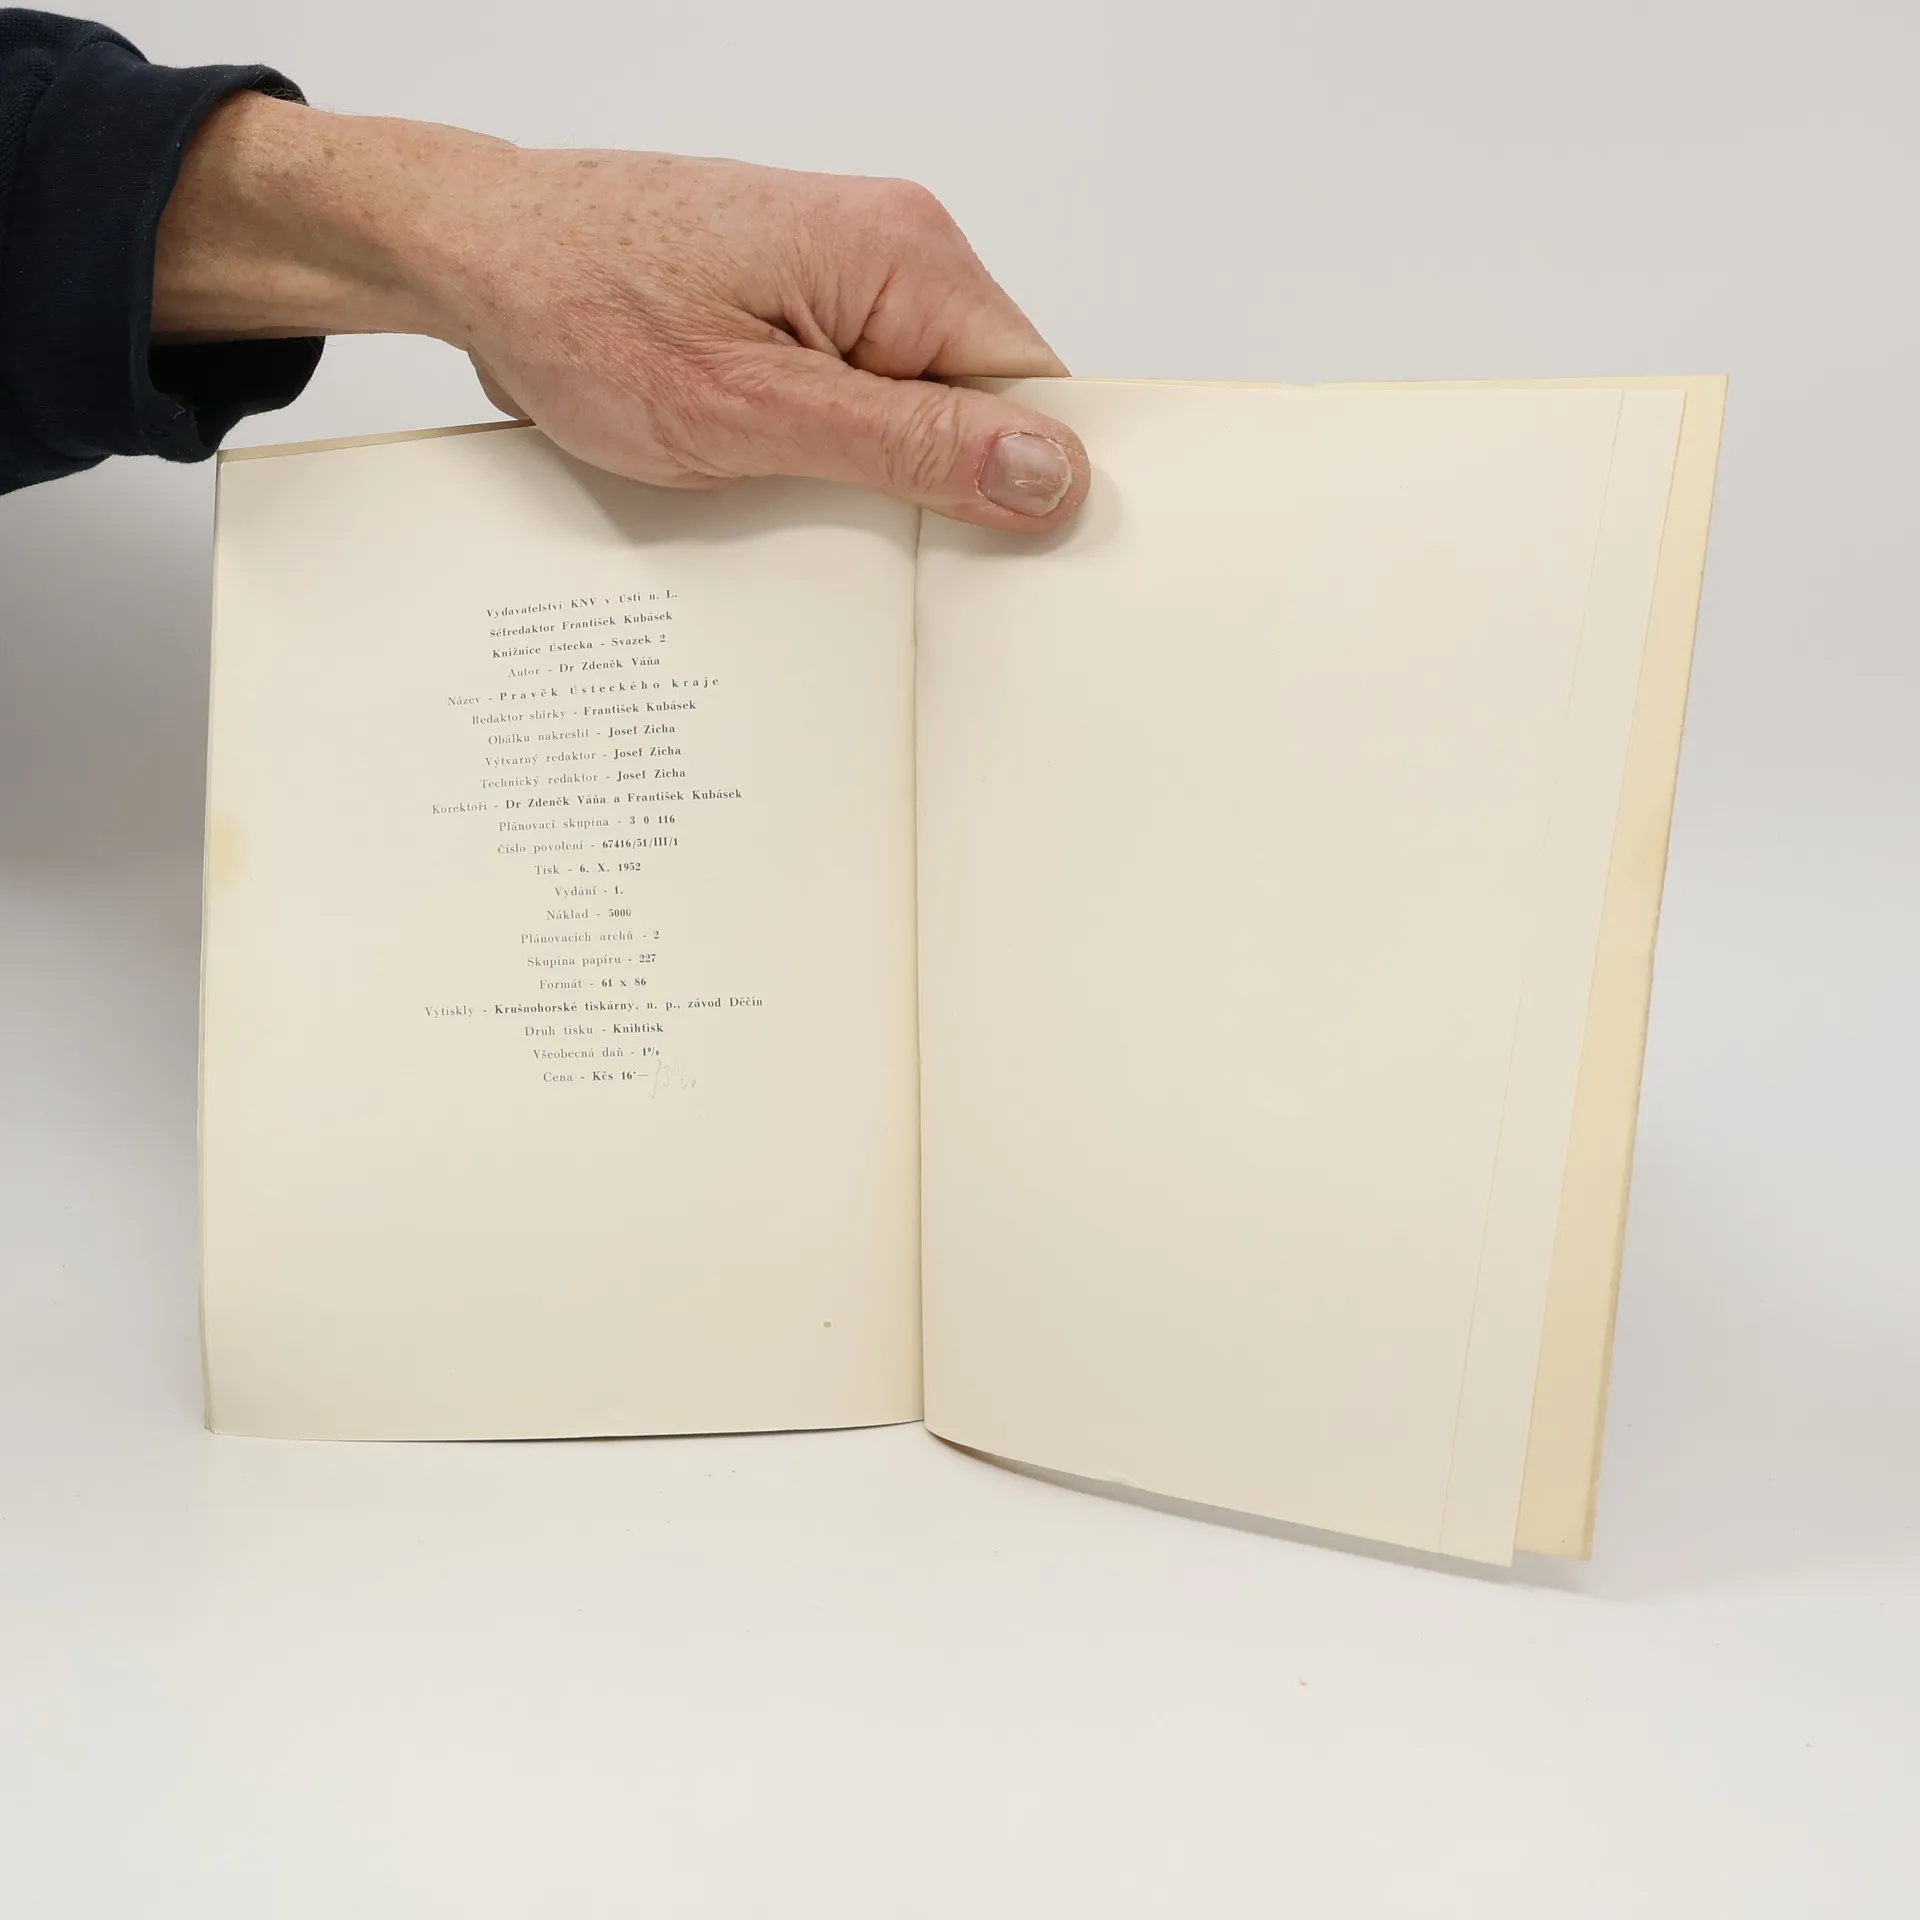 Vydavatelství KNV v Ústí n. L.
Šéfredaktor František Kubásek
Knižnice Ústecka - Svazek 2
Autor - Dr Zdeněk Váňa
Název - Pravěk Ústeckého kraje
Redaktor sbírky - František Kubásek
Obálku nakreslil - Josef Zicha
Výtvarný redaktor - Josef Zicha
Technický redaktor - Josef Zicha
Korektoři - Dr Zdeněk Váňa a František Kubásek
Plánovací skupina - 3 0 116
Číslo povolení - 67416/51/III/1
Tisk - 6. X. 1952
Vydání - 1.
Náklad - 5000
Plánovacích archů - 2
Skupina papíru - 227
Formát - 61 x 86
Vytiskly - Krušnohorské tiskárny, n. p., závod Děčín
Druh tisku - Knihtisk
Všeobecná daň - 1%
Cena - Kčs 16·—